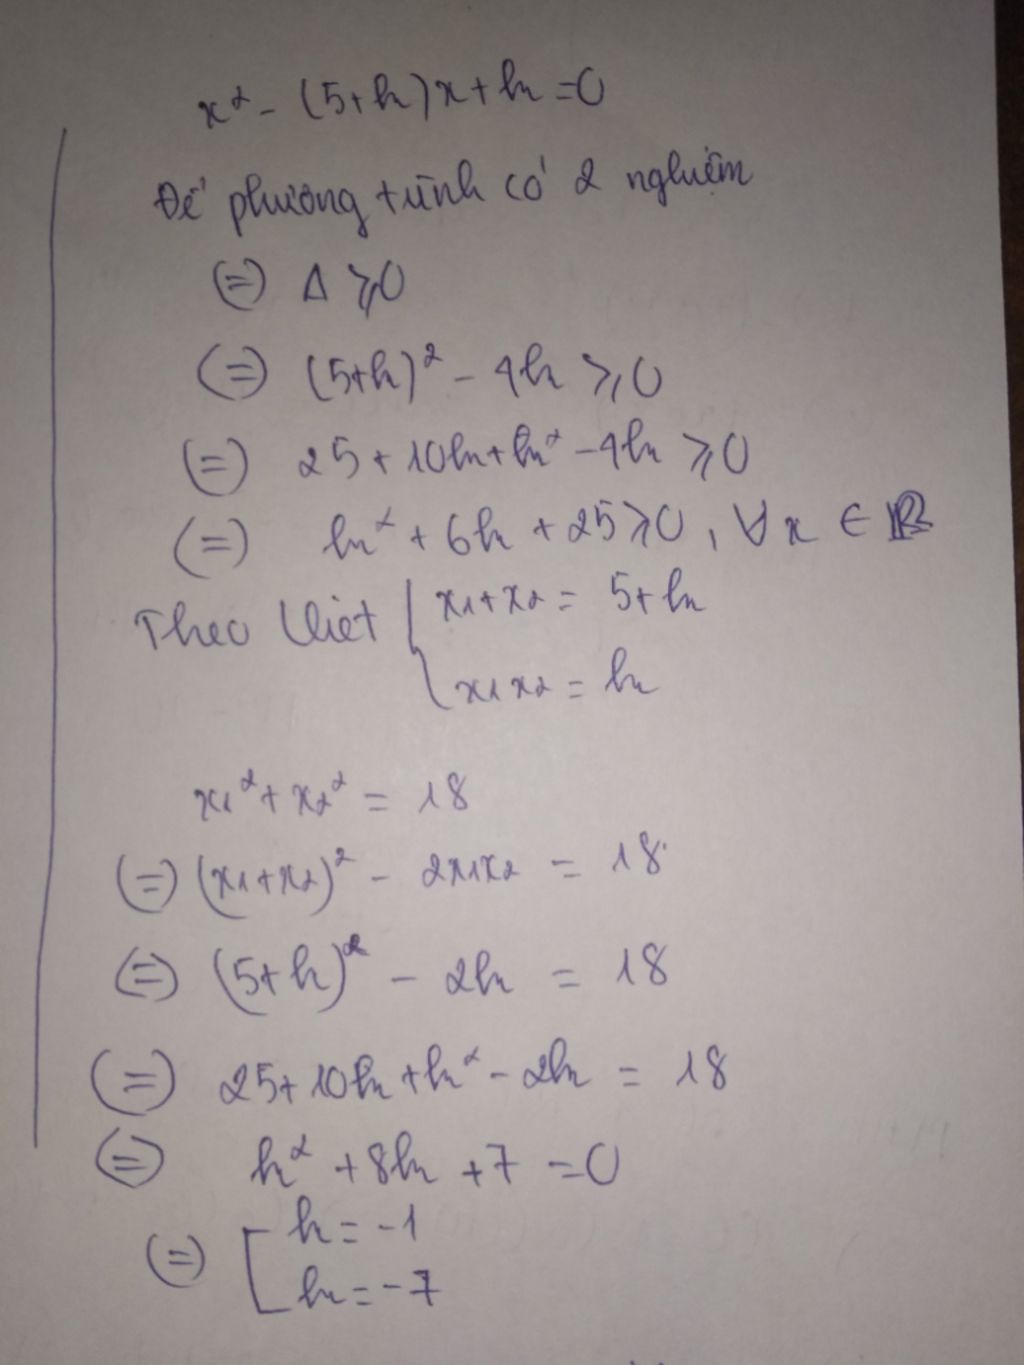 x² - (5+k)x+k=0
Để phương trình có 2 nghiệm
(=) Δ ≥0
(=) (5+k)² - 4k ≥0
(=) 25+10k+k² -4k ≥0
(=) k² + 6k + 25≥0, ∀x ∈ ℝ
Theo Viét { x1+x2 = 5+k
x1x2 = k
x1²+x2² = 18
(=) (x1+x2)² - 2x1x2 = 18
(=) (5+k)² - 2k = 18
(=) 25+10k+k² - 2k = 18
(=) k² +8k +7 =0
(=) [ k=-1
k=-7